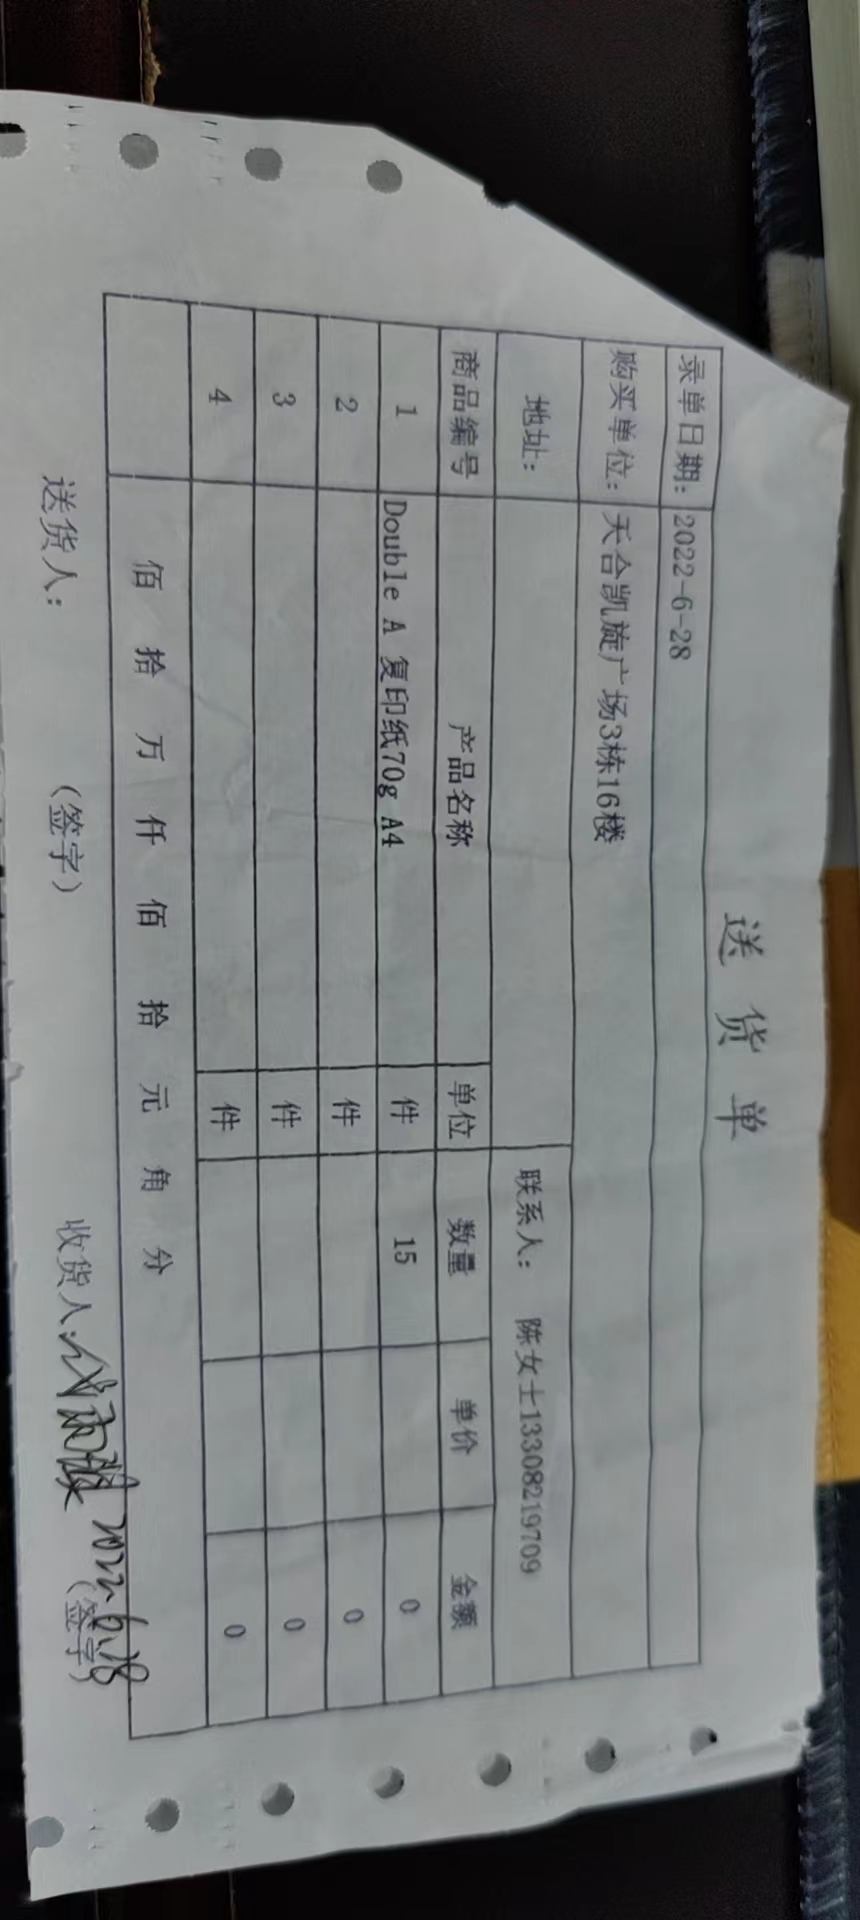 送货单
录单日期: 2022-6-28
购买单位: 天合凯旋广场3栋16楼
地址: 联系人: 陈女士13308219709
商品编号 产品名称 单位 数量 单价 金额
1 Double A 复印纸70g A4 件 15 0
2 件 0
3 件 0
4 件 0
佰 拾 万 仟 佰 拾 元 角 分
送货人: (签字) 收货人: 2022.6.28 (签字)